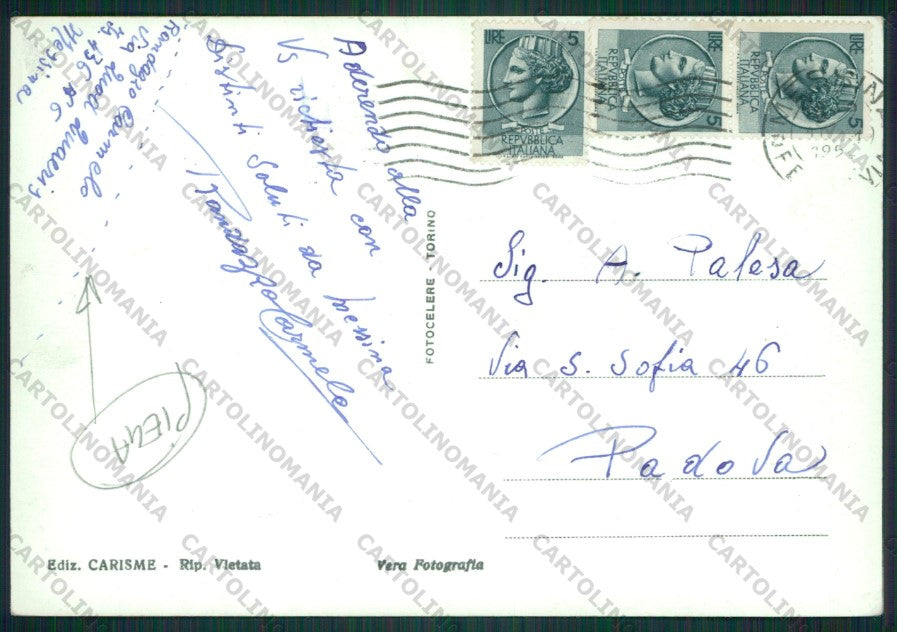 Randazzo Carmelo
Via
Is. 436
Messina
Aderendo alla
Vs richiesta con
Distinti Saluti da Messina
Randazzo Carmelo
PIEGA
LIRE 5
POSTE
REPVBBLICA
ITALIANA
LIRE 5
REPVBBLICA
ITALIANA
LIRE 5
REPVBBLICA
ITALIANA
FOTOCELERE - TORINO
Sig. A. Palesa
Via S. Sofia 46
Padova
Ediz. CARISME - Rip. Vietata
Vera Fotografia
CARTOLINOMANIA